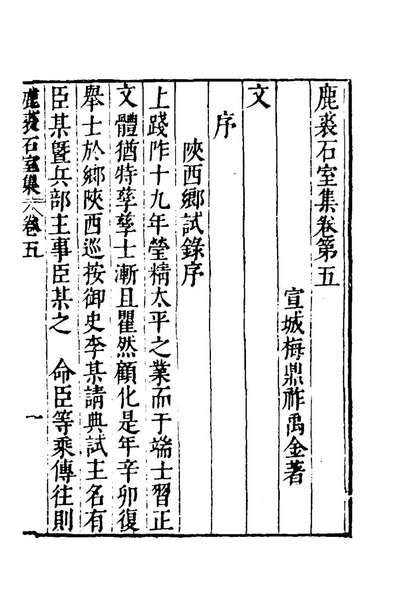 鹿裘石室集卷第五
宣城梅鼎祚禹金著
文
序
陝西鄉試錄序
上踐阼十九年瑩精太平之業而于端士習正
文體猶特孳孳士漸且瞿然顧化是年辛卯復
舉士於鄉陝西巡按御史李某請典試主名有
臣某暨兵部主事臣某之　命臣等乘傳往則
鹿裘石室集　卷五
一